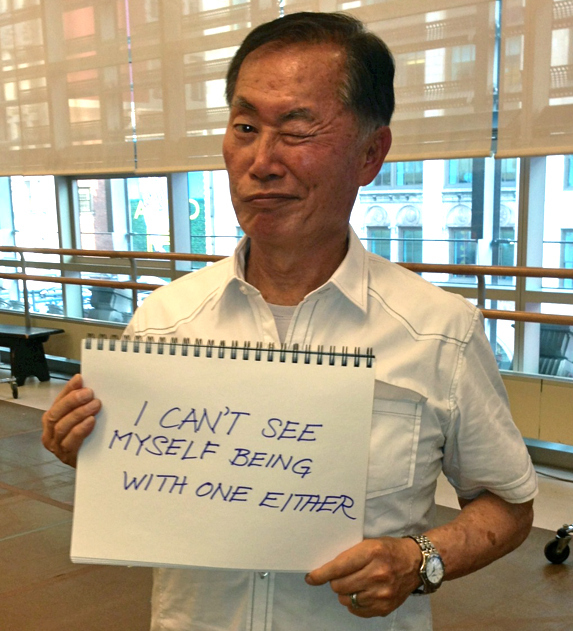 I CAN'T SEE
MYSELF BEING
WITH ONE EITHER